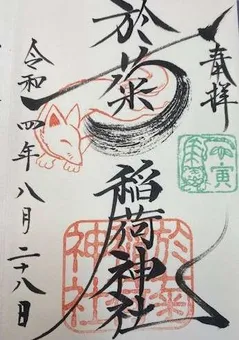 奉拝
於菊
稲荷神社
令和四年八月二十八日
於菊稲荷神社